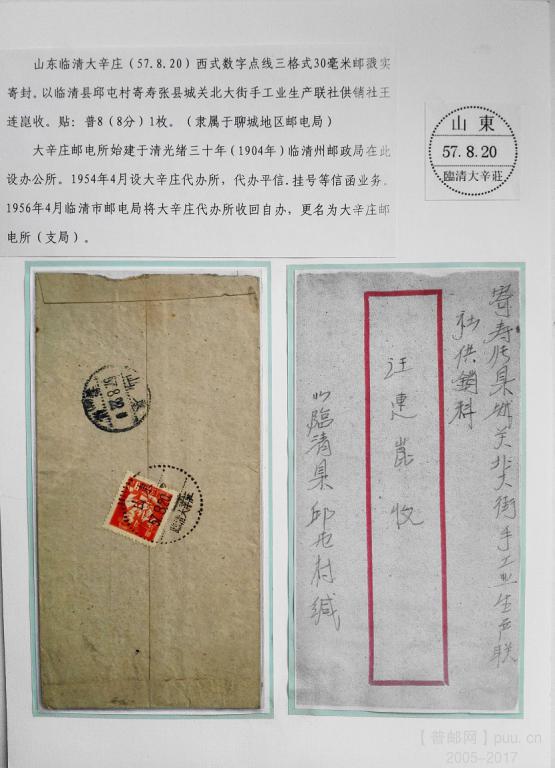 山东临清大辛庄(57.8.20)西式数字点线三格式30毫米邮戳实
寄封。以临清县邱屯村寄寿张县城关北大街手工业生产联社供销社王
连崑收。贴：普8(8分)1枚。(隶属于聊城地区邮电局)
大辛庄邮电所始建于清光绪三十年(1904年)临清州邮政局在此
设办公所。1954年4月设大辛庄代办所，代办平信.挂号等信函业务。
1956年4月临清市邮电局将大辛庄代办所收回自办，更名为大辛庄邮
电所(支局)。
山東
57.8.20
臨清大辛莊
57.8.20
臨清大辛莊
寄寿张县城关北大街手工业生产联
社供銷科
汪連崑收
臨清县邱屯村缄
【普邮网】puu.cn
2005-2017